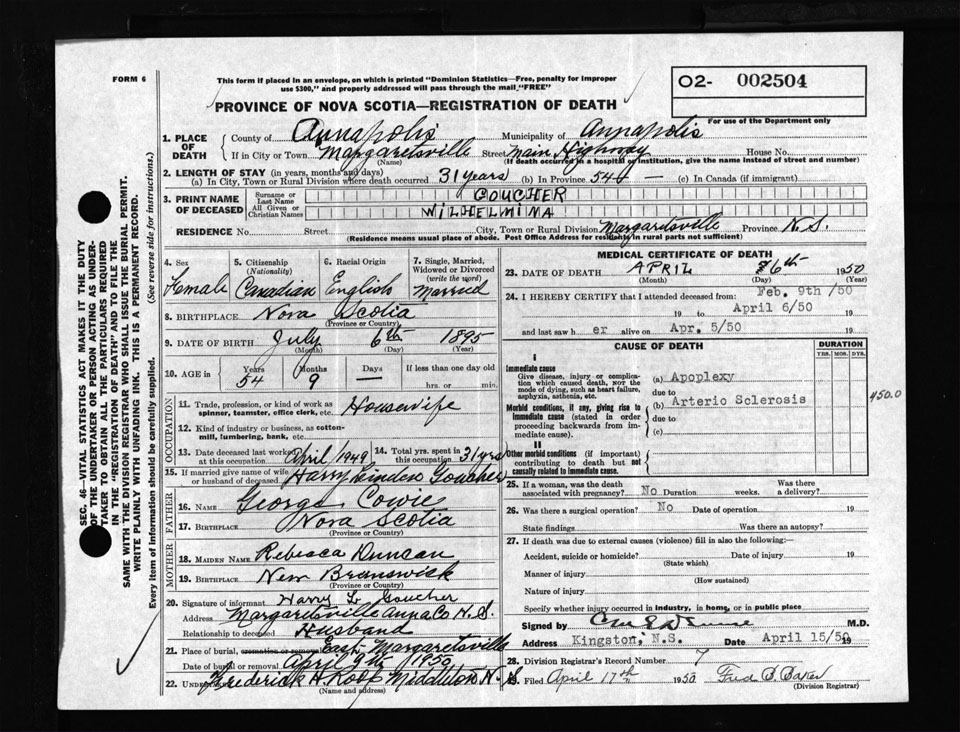 FORM 6
This form if placed in an envelope, on which is printed "Dominion Statistics—Free, penalty for improper
use $300," and properly addressed will pass through the mail "FREE"
O2- 002504
For use of the Department only
PROVINCE OF NOVA SCOTIA—REGISTRATION OF DEATH
1. PLACE OF DEATH County of Annapolis Municipality of Annapolis
If in City or Town Margaretsville Street Main Highway House No.
(Name) (If death occurred in a hospital or institution, give the name instead of street and number)
2. LENGTH OF STAY (in years, months and days)
(a) In City, Town or Rural Division where death occurred 31 years (b) In Province 54 — (c) In Canada (if immigrant)
3. PRINT NAME OF DECEASED Surname or Last Name GOUCHER
All Given or Christian Names WILHELMINA
RESIDENCE No. Street City, Town or Rural Division Margaretsville Province N.S.
(Residence means usual place of abode. Post Office Address for residents in rural parts not sufficient)
4. Sex Female
5. Citizenship (Nationality) Canadian
6. Racial Origin English
7. Single, Married, Widowed or Divorced (write the word) Married
8. BIRTHPLACE Nova Scotia
(Province or Country)
9. DATE OF BIRTH July 6th 1895
(Month) (Day) (Year)
10. AGE in Years 54 Months 9 Days — If less than one day old hrs. or min.
OCCUPATION
11. Trade, profession, or kind of work as spinner, teamster, office clerk, etc. Housewife
12. Kind of industry or business, as cotton-mill, lumbering, bank, etc.
13. Date deceased last worked at this occupation April 1949
14. Total yrs. spent in this occupation 31 yrs
15. If married give name of wife or husband of deceased Harry Linden Goucher
FATHER
16. Name George Cowie
17. Birthplace Nova Scotia
(Province or Country)
MOTHER
18. Maiden Name Rebecca Duncan
19. Birthplace New Brunswick
(Province or Country)
20. Signature of informant Harry L Goucher
Address Margaretsville Anna Co N.S.
Relationship to deceased Husband
21. Place of burial, cremation or removal East Margaretsville
Date of burial or removal April 9th 1950
22. Undertaker Frederick H. Roop Middleton N.S.
(Name and address)
MEDICAL CERTIFICATE OF DEATH
23. DATE OF DEATH APRIL 6th 1950
(Month) (Day) (Year)
24. I HEREBY CERTIFY that I attended deceased from: Feb. 9th /50
19 to April 6/50 19
and last saw h er alive on Apr. 5/50 19
CAUSE OF DEATH
DURATION
YRS. MOS. DYS.
I
Immediate cause
Give disease, injury or complication which caused death, NOT the mode of dying, such as heart failure, asphyxia, asthenia, etc.
(a) Apoplexy
due to
Morbid conditions, if any, giving rise to immediate cause (stated in order proceeding backwards from immediate cause).
(b) Arterio Sclerosis
due to
(c)
450.0
II
Other morbid conditions (if important) contributing to death but not causally related to immediate cause.
25. If a woman, was the death associated with pregnancy? No Duration weeks. Was there a delivery?
26. Was there a surgical operation? No Date of operation 19
State findings Was there an autopsy?
27. If death was due to external causes (violence) fill in also the following:—
Accident, suicide or homicide? Date of injury 19
(State which)
Manner of injury
(How sustained)
Nature of injury
Specify whether injury occurred in industry, in home, or in public place
Signed by M.D.
Address Kingston, N.S. Date April 15/50 19
28. Division Registrar's Record Number 7
Filed April 17th 1950 Fred S. Baker
(Division Registrar)
SEC. 46—VITAL STATISTICS ACT MAKES IT THE DUTY
OF THE UNDERTAKER OR PERSON ACTING AS UNDER-
TAKER TO OBTAIN ALL THE PARTICULARS REQUIRED
IN THE "REGISTRATION OF DEATH" AND TO FILE THE
SAME WITH THE DIVISION REGISTRAR WHO SHALL ISSUE THE BURIAL PERMIT.
WRITE PLAINLY WITH UNFADING INK. THIS IS A PERMANENT RECORD.
Every item of information should be carefully supplied. (See reverse side for instructions.)